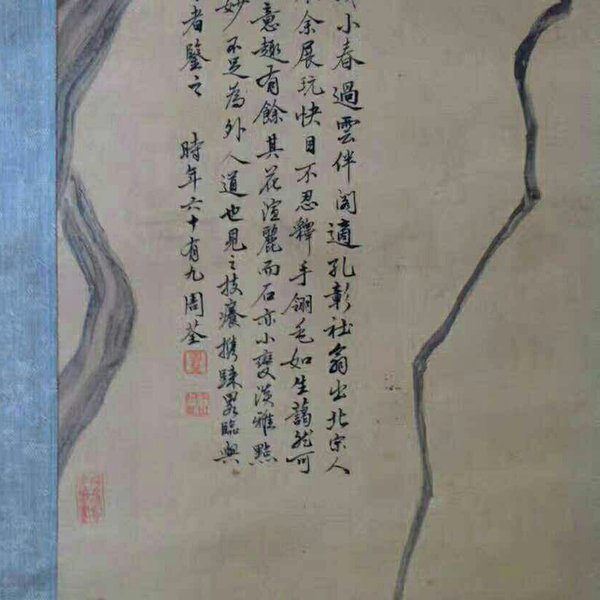 小春過雲伴閣適孔彰社翁出北宗人
余展玩快目不忍釋手翎毛如生藹然可
意趣有餘其花渲麗而石亦小變淡雅點
妙不足為外人道也見之技癢携歸畧臨與
者鑒之 時年六十有九周荃